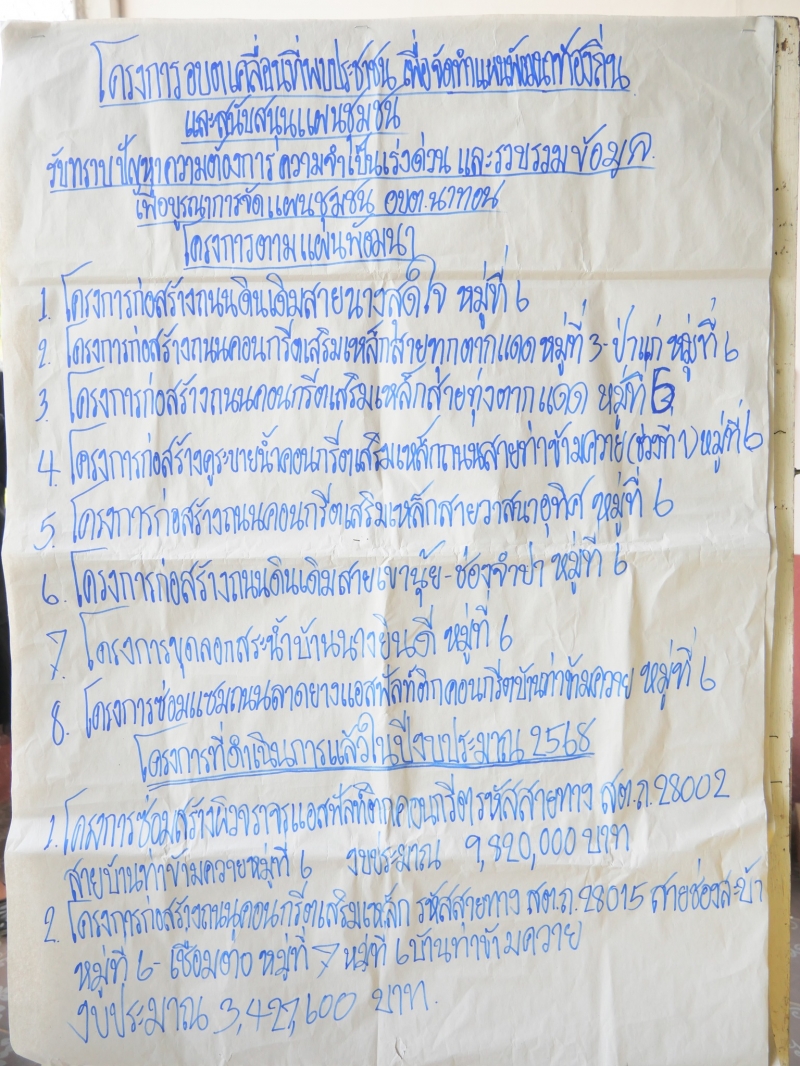 โครงการ อบต.เคลื่อนที่พบประชาชน เพื่อจัดทำแผนพัฒนาท้องถิ่น
และสนับสนุนแผนชุมชน
รับทราบปัญหาความต้องการ ความจำเป็นเร่งด่วน และรวบรวมข้อมูล
เพื่อบูรณาการจัดแผนชุมชน อบต.นาทอน
โครงการตามแผนพัฒนา
1. โครงการก่อสร้างถนนดินเดิมสายนางสุดใจ หมู่ที่ 6
2. โครงการก่อสร้างถนนคอนกรีตเสริมเหล็กสายทุกตากแดด หมู่ที่ 3-ป่าแก่ หมู่ที่ 6
3. โครงการก่อสร้างถนนคอนกรีตเสริมเหล็กสายทุ่งตากแดด หมู่ที่ 6
4. โครงการก่อสร้างคูระบายน้ำคอนกรีตเสริมเหล็กถนนสายท่าข้ามควาย (ช่วงที่ 1) หมู่ที่ 6
5. โครงการก่อสร้างถนนคอนกรีตเสริมเหล็กสายวาสนาอุทิศ หมู่ที่ 6
6. โครงการก่อสร้างถนนดินเดิมสายเขานุ้ย-ช่องจำปา หมู่ที่ 6
7. โครงการขุดลอกสระน้ำบ้านนางยินดี หมู่ที่ 6
8. โครงการซ่อมแซมถนนลาดยางแอสฟัลท์ติกคอนกรีตบ้านท่าข้ามควาย หมู่ที่ 6
โครงการที่ดำเนินการแล้วในปีงบประมาณ 2568
1. โครงการซ่อมสร้างผิวจราจรแอสฟัลท์ติกคอนกรีต รหัสสายทาง สต.ถ.28002
สายบ้านท่าข้ามควายหมู่ที่ 6 งบประมาณ 9,820,000 บาท
2. โครงการก่อสร้างถนนคอนกรีตเสริมเหล็ก รหัสสายทาง สต.ถ.28015 สายช่องสะบ้า
หมู่ที่ 6-เชื่อมต่อ หมู่ที่ 7 หมู่ที่ 6 บ้านท่าข้ามควาย
งบประมาณ 3,427,600 บาท.